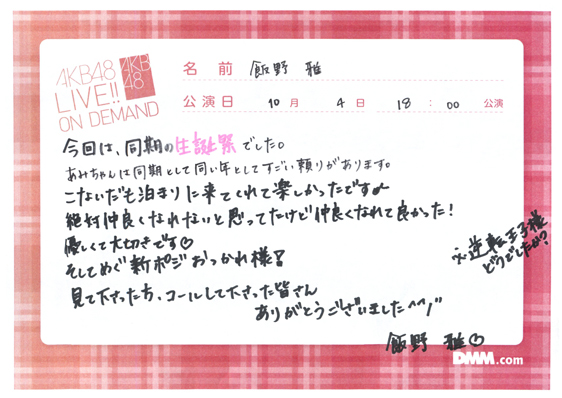 AKB48
LIVE!!
ON DEMAND
AKB
48
名前 飯野 雅
公演日 10月 4日 18:00 公演
今回は、同期の生誕祭でした。
あみちゃんは同期として同い年としてすごい頼りがあります。
こないだも泊まりに来てくれて楽しかったです♪
絶対仲良くなれないと思ってたけど仲良くなれて良かった!
優しくて大切きです♡
そしてめぐ新ポジおつかれ様!
※逆転王子様
どうでしたか?
見て下さった方、コールして下さった皆さん
ありがとうございました^^/"
飯野 雅♡
DMM.com